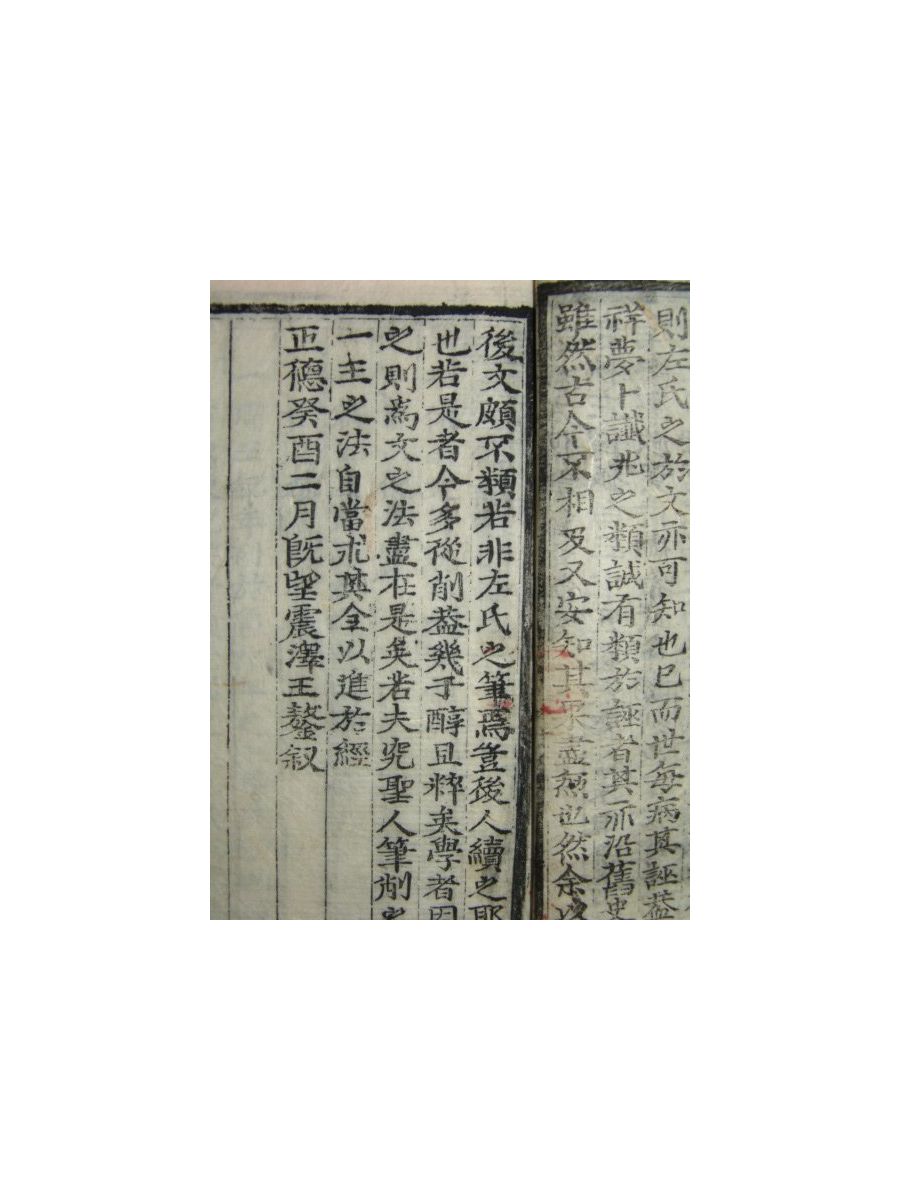 則左氏之於文亦可知也已而世每病其誣蓋
祥夢卜讖兆之類誠有類於誣者其亦沿舊史
雖然古今不相及又安知其果盡然也然余以
後文頗不類若非左氏之筆焉豈後人續之耶
也若是者今多從削蓋幾于醇且粹矣學者因
之則為文之法盡在是矣若夫究聖人筆削之
一主之法自當求其全以進於經
正德癸酉二月既望震澤王鏊叙